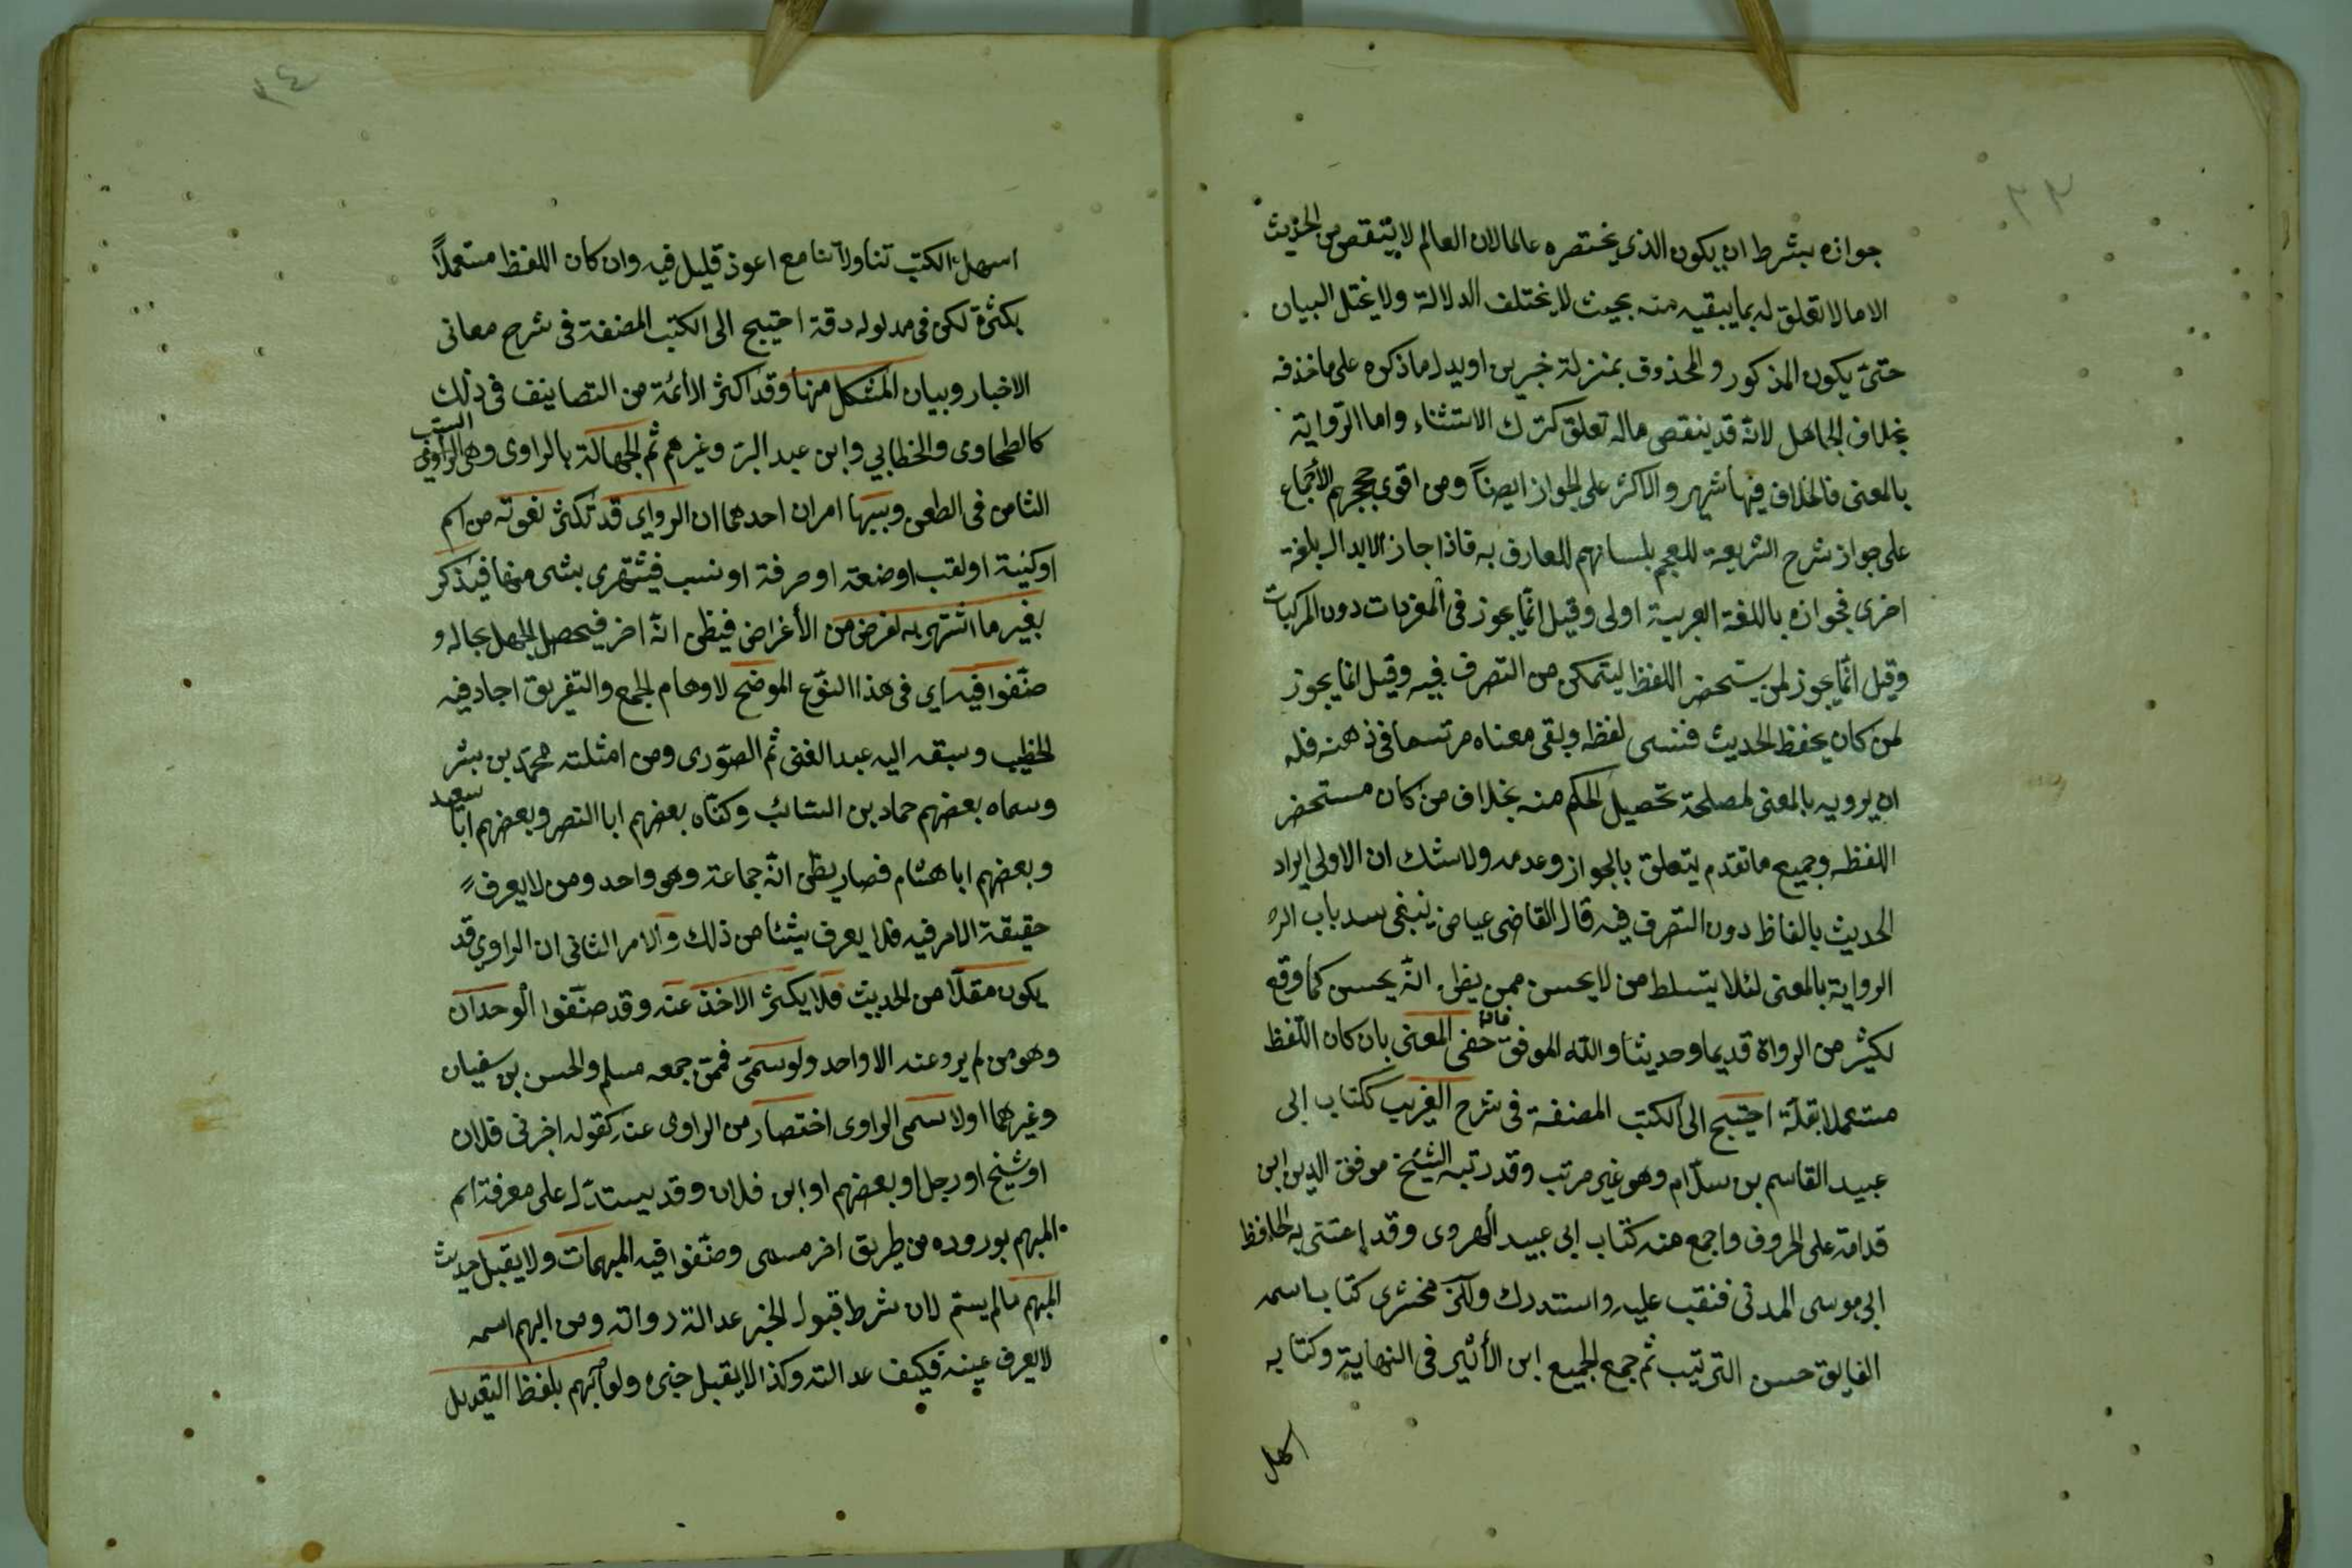 ٢٣
جوازه بشرط ان يكون الذى يختصره عالما لان العالم لا ينقص من الحديث
الا ما لا تعلق له بما يبقيه منه بحيث لا يختلف الدلالة ولا يختل البيان
حتى يكون المذكور والمحذوف بمنزلة خبرين او يدل ما ذكره على ما حذفه
بخلاف الجاهل لانه قد ينقص ماله تعلق كترك الاستثناء واما الرواية
بالمعنى فالخلاف فيها شهير والاكثر على الجواز ايضاً ومن اقوى حججهم الأجماع
على جواز شرح الشريعة للعجم بلسانهم للعارف به فاذا جاز الابدال بلغة
اخرى فجوازه باللغة العربية اولى وقيل انما يجوز فى المفردات دون المركبات
وقيل انما يجوز لمن يستحضر اللفظ ليتمكن من التصرف فيه وقيل انما يجوز
لمن كان يحفظ الحديث فنسى لفظه وبقى معناه مرتسما فى ذهنه فله
ان يرويه بالمعنى لمصلحة تحصيل الحكم منه بخلاف من كان مستحضر
اللفظه وجميع ما تقدم يتعلق بالجواز وعدمه ولا شك ان الاولى ايراد
الحديث بالفاظ دون التصرف فيه قال القاضى عياض ينبغى سد باب الر
الرواية بالمعنى لئلا يتسلط من لا يحسن ممن يظن انه يحسن كما وقع
لكثير من الرواة قديما وحديثا والله الموفق فان خفى المعنى بان كان اللفظ
مستعملا بقلة احتيج الى الكتب المصنفة فى شرح الغريب ككتاب ابى
عبيد القاسم بن سلام وهو غير مرتب وقد رتبه الشيخ موفق الدين ابن
قدامة على الحروف واجمع منه كتاب ابى عبيد الهروى وقد اعتنى به الحافظ
ابى موسى المدنى فنقب عليه واستدرك وللزمخشرى كتاب اسمه
الفايق حسن الترتيب ثم جمع الجميع ابن الأثير فى النهاية وكتابه
اسهل
٢٤
اسهل الكتب تناولا تنا مع اعوذ قليل فيه وان كان اللفظ مستعملاً
بكثرة لكن فى مدلوله دقة احتيج الى الكتب المصنفة فى شرح معانى
الاخبار وبيان المشكل منها وقد اكثر الأئمة من التصانيف فى ذلك
كالطحاوى والخطابي وابن عبد البر وغيرهم ثم الجهالة بالراوى وهى السبب
الثامن فى الطعن وسببها امران احدهما ان الرواى قد تكثر نعوته من اسم
او كنية او لقب او صنعة او حرفة او نسب فيشتهرى بشى منها فيذكر
بغير ما اشتهر به لغرض من الأغراض فيظن انه اخر فيحصل الجهل بحاله و
صنفوا فيه اى فى هذا النوع الموضح لاوهام الجمع والتفريق اجاد فيه
الخطيب وسبقه اليه عبد الغنى ثم الصورى ومن امثلته محمد بن بشر
وسماه بعضهم حماد بن السائب وكناه بعضهم ابا النصر وبعضهم ابا سعيد
وبعضهم ابا هشام فصار يظن انه جماعة وهى واحد ومن لا يعرف
حقيقة الامر فيه فلا يعرف شيئا من ذلك والامر الثانى ان الراوي قد
يكون مقلا من الحديث فلا يكثر الاخذ عنه وقد صنفوا الوحدان
وهو من لم يرو عنه الا واحد ولو سمى فممن جمعه مسلم والحسن بن سفيان
وغيرهما اولا يسمى الراوى اختصار من الراوى عنه كقوله اخبرنى فلان
او شيخ او رجل او بعضهم او ابن فلان وقد يستدل على معرفة اسم
المبهم بوروده من طريق اخر مسمى وصنفوا فيه المبهمات ولا يقبل حديث
المبهم مالم يسم لان شرط قبول الخبر عدالة رواته ومن ابهم اسمه
لا يعرف عينه فكيف عدالته وكذا لا يقبل خبره ولو ابهم بلفظ التعديل